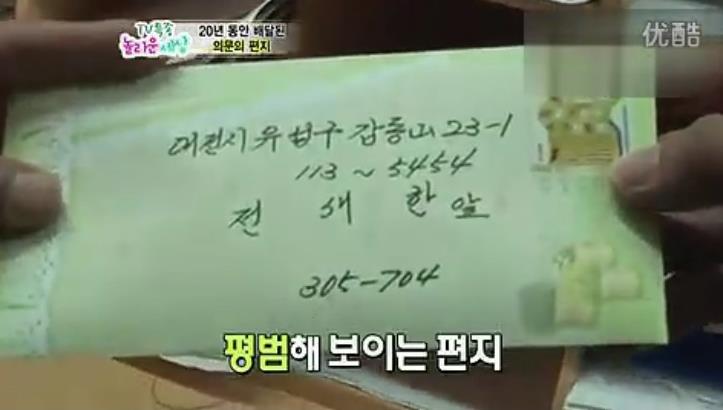 TV특종
놀라운 세상
20년 동안 배달된
의문의 편지
优酷
대전시 유성구 갑동山 23-1
113 ~ 5454
전 새 한 앞
305-704
평범해 보이는 편지